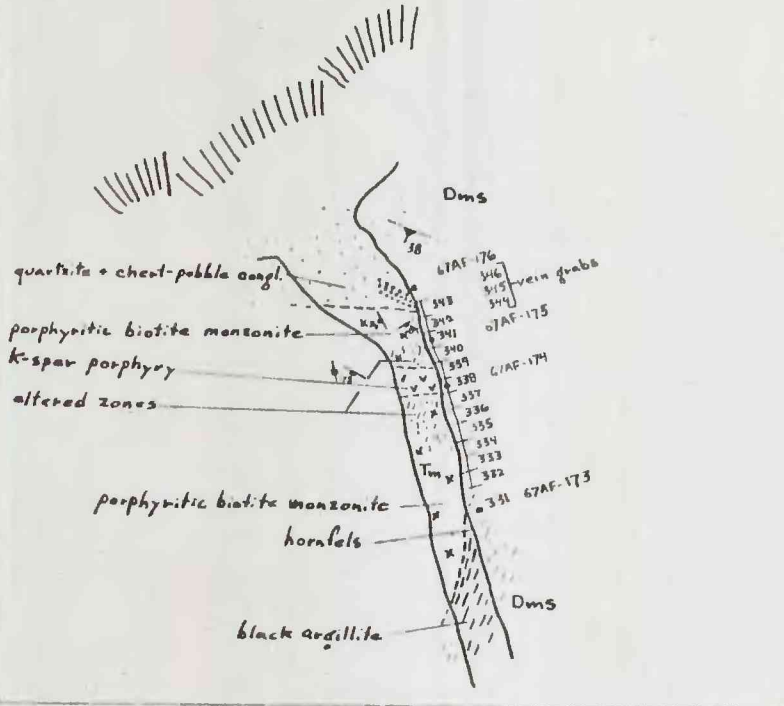 Dms
38
67AF-176
346
345
344
vein grabs
quartzite + chert-pebble congl.
343
342
67AF-175
341
porphyritic biotite monzonite
340
339
K-spar porphyry
67AF-174
338
337
altered zones
336
335
334
333
Tm
332
porphyritic biotite monzonite
331 67AF-173
hornfels
Dms
black argillite